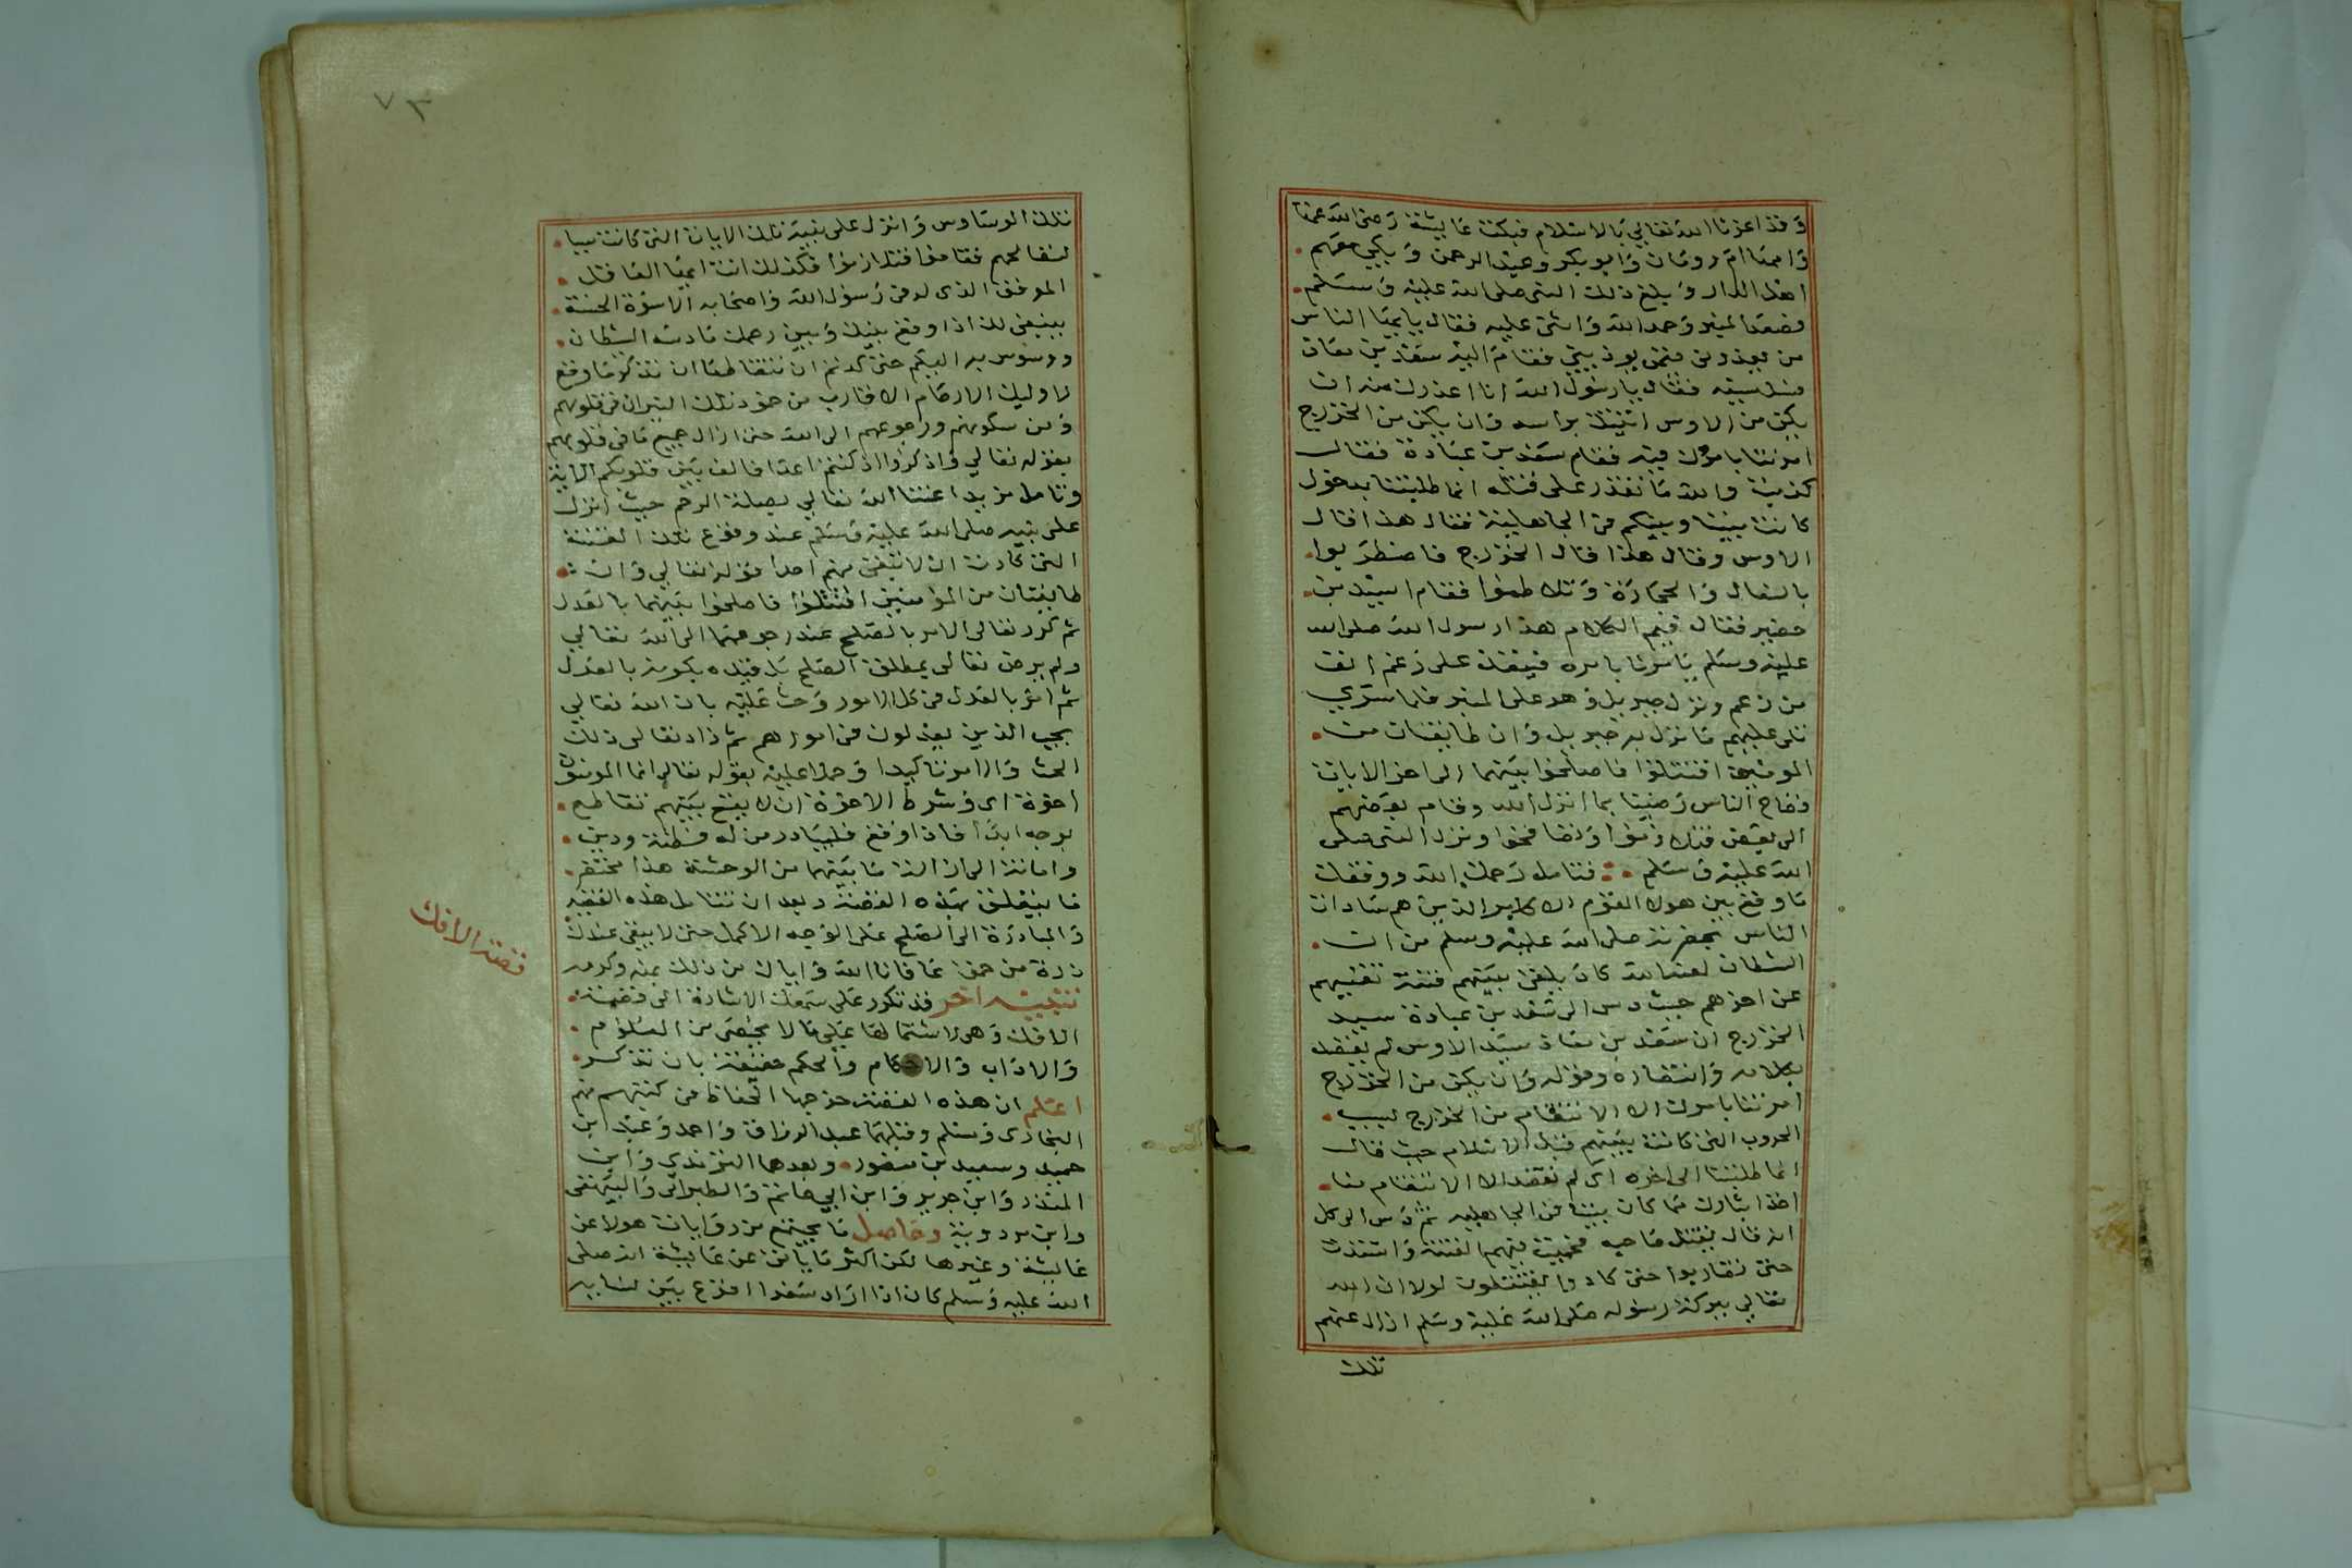 وقد اعزنا الله تعالى بالاسلام فبكت عايشة رضي الله عنها
وامها ام رومان وابو بكر وعبد الرحمن وبكى معهم
اهل الدار وبلغ ذلك النبي صلى الله عليه وسلم
فصعد المنبر وحمد الله واثنى عليه فقال يا ايها الناس
من يعذرني فيمن يوذيني فقام اليه سعد بن معاذ
فسل سيفه فقال يا رسول الله انا اعذرك منه ان
يكن من الاوس اتيتك براسه وان يكن من الخزرج
امرتنا بامرك فيه فقام سعد بن عبادة فقال
كذبت والله ما تقدر على قتله انما طلبتنا بدخول
كانت بيننا وبينكم في الجاهلية فقال هذا قال
الاوس وقال هذا قال الخزرج فاضطربوا
بالنعال والحجارة وتلاطموا فقام اسيد بن
حضير فقال فيم الكلام هذا رسول الله صلى الله
عليه وسلم يامرنا بامره فينفذ على زعم انف
من زعم ونزل جبريل وهو على المنبر فلما سري
تلى عليهم ما نزل به جبريل وان طايفتان من
المومنين اقتتلوا فاصلحوا بينهما الى اخر الايات
فصاح الناس رضينا بما انزل الله وقام بعضهم
الى بعض فتلازموا وتصافحوا ونزل النبي صلى
الله عليه وسلم فتامل رحمك الله ووفقك
ما وقع بين هولا القوم الاكابر الذين هم سادات
الناس بحضرته صلى الله عليه وسلم من ان
الشطان لعنه الله كاد يلقى بينهم فتنة تفنيهم
عن اخرهم حيث دس الى سعد بن عبادة سيد
الخزرج ان سعد بن معاذ سيد الاوس لم يقصد
بكلامه وانتصاره وقوله وان يكن من الخزرج
امرتنا بامرك الا الانتقام من الخزرج لسبب
الحروب التي كانت بينهم قبل الاسلام حيث قال
انما طلبتنا الى اخره اي لم تقصد الا الانتقام منا
اخذا بثارك مما كان بيننا في الجاهلية ثم دس الى كل
ان قال بقتل صاحبه فحميت بينهم الفتنة واشتدت
حتى تقاربوا حتى كادوا يقتتلون لولا ان الله
تعالى ببركة رسوله صلى الله عليه وسلم ازال عنهم
تلك
٧٣
تلك الوساوس وانزل على نبيه تلك الايات التي كانت سببا
لتصالحهم فقاموا فتلازموا فكذلك انت ايها العاقل
الموفق الذي له في رسول الله واصحابه الاسوة الحسنة
ينبغي لك اذا وقع بينك وبين رحمك ما دسه الشطان
ووسوس به اليكم حتى كدتم ان تتقاطعا ان تتذكر ما وقع
لاوليك الارحام الاقارب من خود تلك النيران في قلوبهم
ومن سكونهم ورجوعهم الى الله حتى ازال جميع ما في قلوبهم
بقوله تعالى واذكروا اذ كنتم اعدا فالف بين قلوبكم الاية
وتامل مزيد اعتنا الله تعالى بصلة الرحم حيث انزل
على نبيه صلى الله عليه وسلم عند وقوع تلك الفتنة
التي كادت ان لا تبقي منهم احدا قوله تعالى وان
طايفتان من المؤمنين اقتتلوا فاصلحوا بينهما بالعدل
ثم كرر تعالى الامر بالصلح عند رجوعهما الى الله تعالى
ولم يرض تعالى بمطلق الصلح بل قيده بكونه بالعدل
ثم امر بالعدل في كل الامور وحث عليه بان الله تعالى
يحب الذين يعدلون في امورهم ثم زاد تعالى ذلك
الحث والامر تاكيدا وحملا عليه بقوله تعالى انما المومنون
اخوة اي وشرط الاخوة ان لا يقع بينهم تقاطع
بوجه ابدا فاذا وقع فليبادر من له فطنة ودين
وامانة الى ازالة ما بينهما من الوحشة هذا مختصر
ما يتعلق بهذه القصة وبعد ان تتامل هذه القضية
والمبادرة الى الصلح على الوجه الاكمل حتى لا يبقى عندك
ذرة من حقد عافانا الله واياك من ذلك بمنه وكرمه
تنبيه اخر قد تكرر على سمعك الاشارة الى قصة
الافك وهي لاشتمالها على ما لا يحصى من العلوم
والاداب والاحكام والحكم حقيقة بان تذكر
اعلم ان هذه القصة خرجها الحفاظ في كتبهم منهم
البخاري ومسلم وقبلهما عبد الرزاق واحمد وعبد ابن
حميد وسعيد بن منصور وبعدهما الترمذي وابن
المنذر وابن جرير وابن ابي حاتم والطبراني والبيهقي
وابن مردويه وحاصل ما يجتمع من روايات هولا عن
عايشة وغيرها لكن اكثر ما ياتي عن عايشة انه صلى
الله عليه وسلم كان اذا اراد سفرا اقرع بين نسايه
قصة الافك